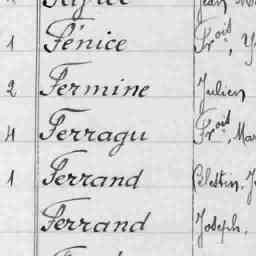 1 Fénice Frois, Y
2 Fermine Julien
4 Ferragu Frois, Mar
1 Ferrand Célestin, J
Ferrand Joseph,